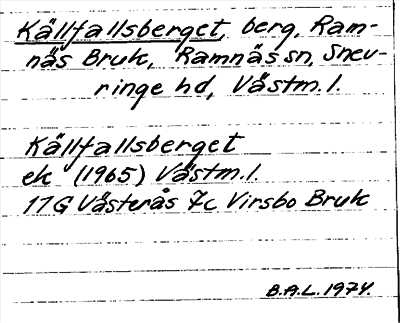 Källfallsberget, berg, Ram-
näs Bruk, Ramnäs sn, Snev-
ringe hd, Västm.l.
Källfallsberget
ek (1965) Västm.l.
17G Västerås 7c Virsbo Bruk
B.A.L. 1974.